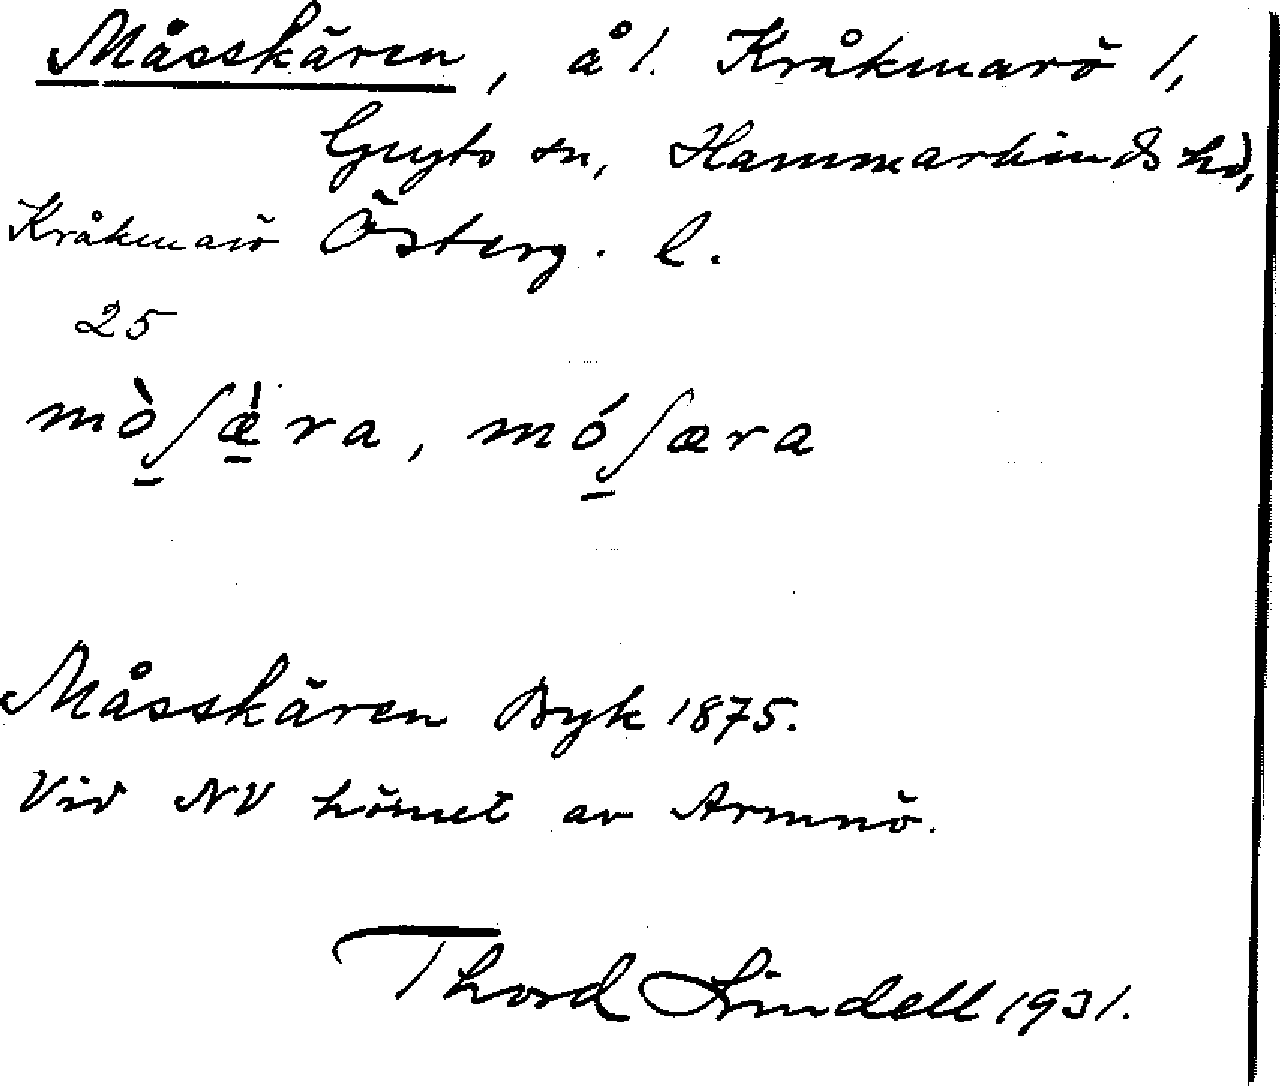 Måsskären, å 1. Kråkmarö 1,
Gryts sn, Hammarkinds hd,
Kråkmarö Österg. l.
25
mòʃæ̀ra, móʃæra
Måsskären Byk 1875.
Vid NV hörnet av Armnö.
Thord Lindell 1931.